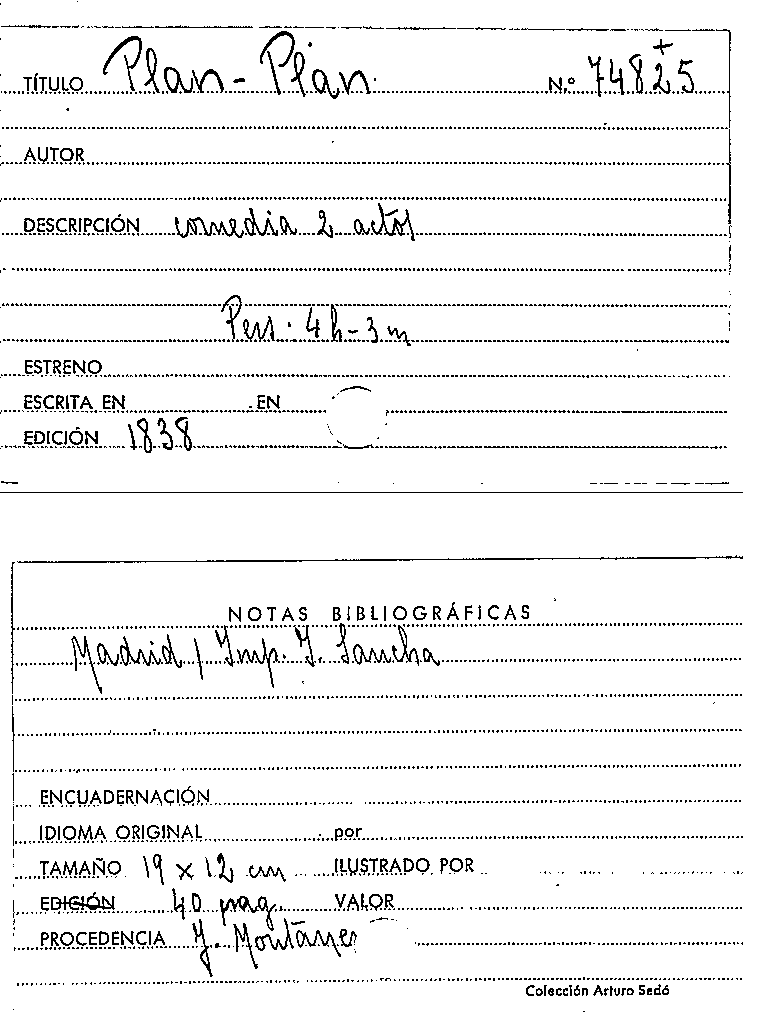 TÍTULO Plan-Plán. N.º 74825 +
AUTOR
DESCRIPCIÓN comedia 2 actos
Pers. 4h-3m
ESTRENO
ESCRITA EN . EN
EDICIÓN 1838
NOTAS BIBLIOGRÁFICAS
Madrid / Imp. I. Sancha
ENCUADERNACIÓN
IDIOMA ORIGINAL por
TAMAÑO 19 x 12 cm ILUSTRADO POR
EDICIÓN 40 pag. VALOR
PROCEDENCIA J. Montaner
Colección Arturo Sedó